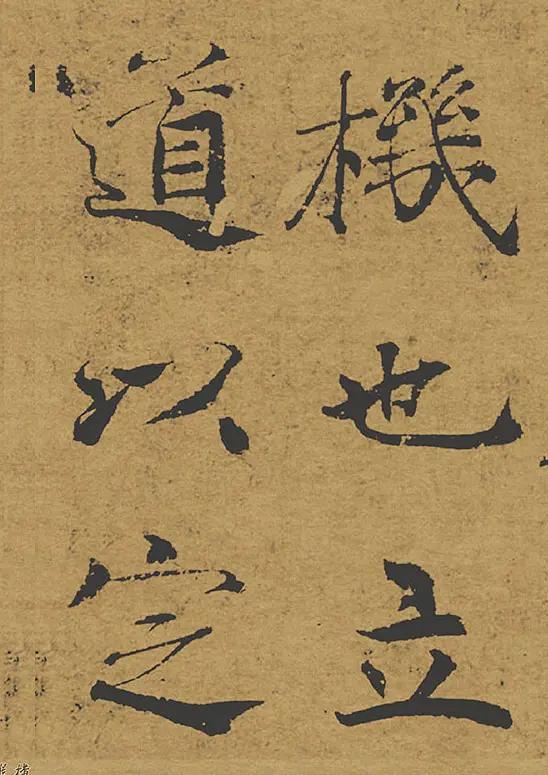 機也立
道以定